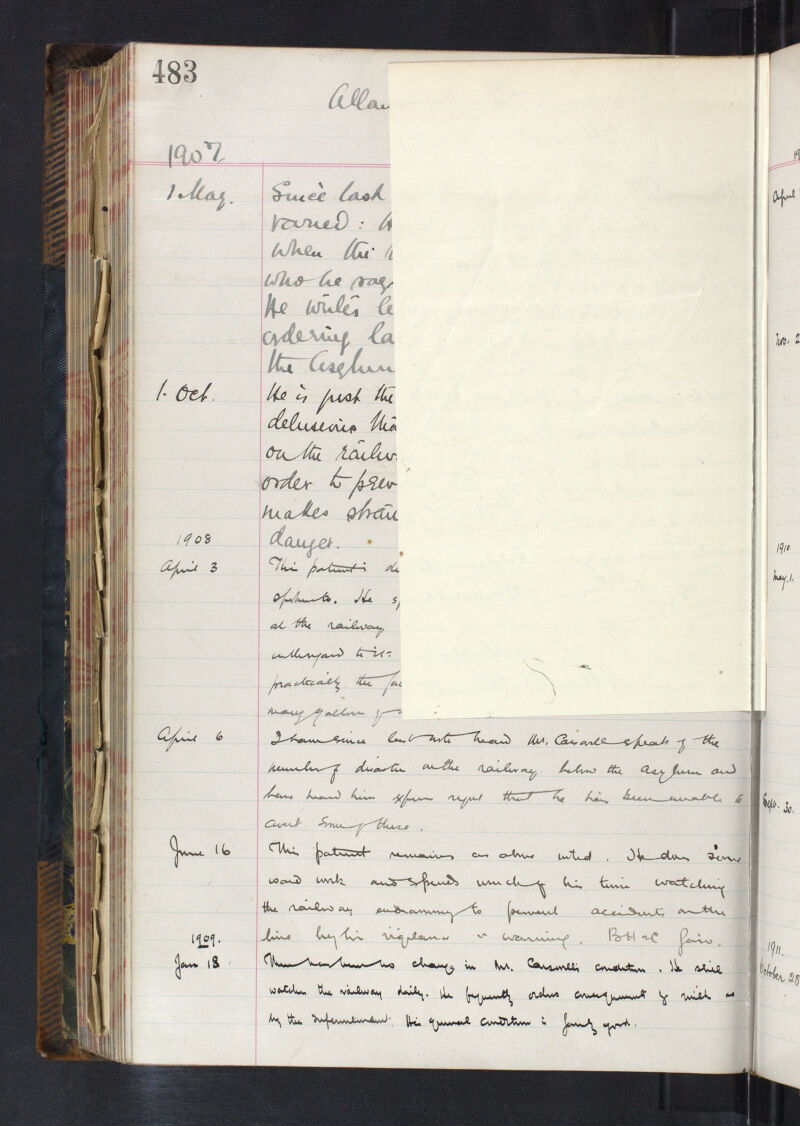 483
Allan
1907
1 May. Since last
varied: H
when the
who he says
He writes le
ordering la
the Asylum
1. Oct. He is just the
delusions tha
on the railw
order to prev
makes strau
danger.
1908
April 3 This patient is de
He sp
at the railway
with regard to it:
practically the fa
many gallons of
April 6 I have since last note heard Mr. speak of the
number of disasters on the railway below the Asylum and
have heard him express regret that he has been unable to
avert some of these.
June 16 This patient remains as above noted. He does some
ward work and spends much of his time watching
the railway endeavouring to prevent accidents on the
line by his vigilance & warning. B H & C fair.
1909.
Jan 18 There has been no change in Mr. condition. He still
watches the railway daily. He frequently orders consignments of milk as
by the Superintendent. His general condition is fairly good.
April
Nov. 2
1910
May. 1.
Sept. 30.
1911.
October 28